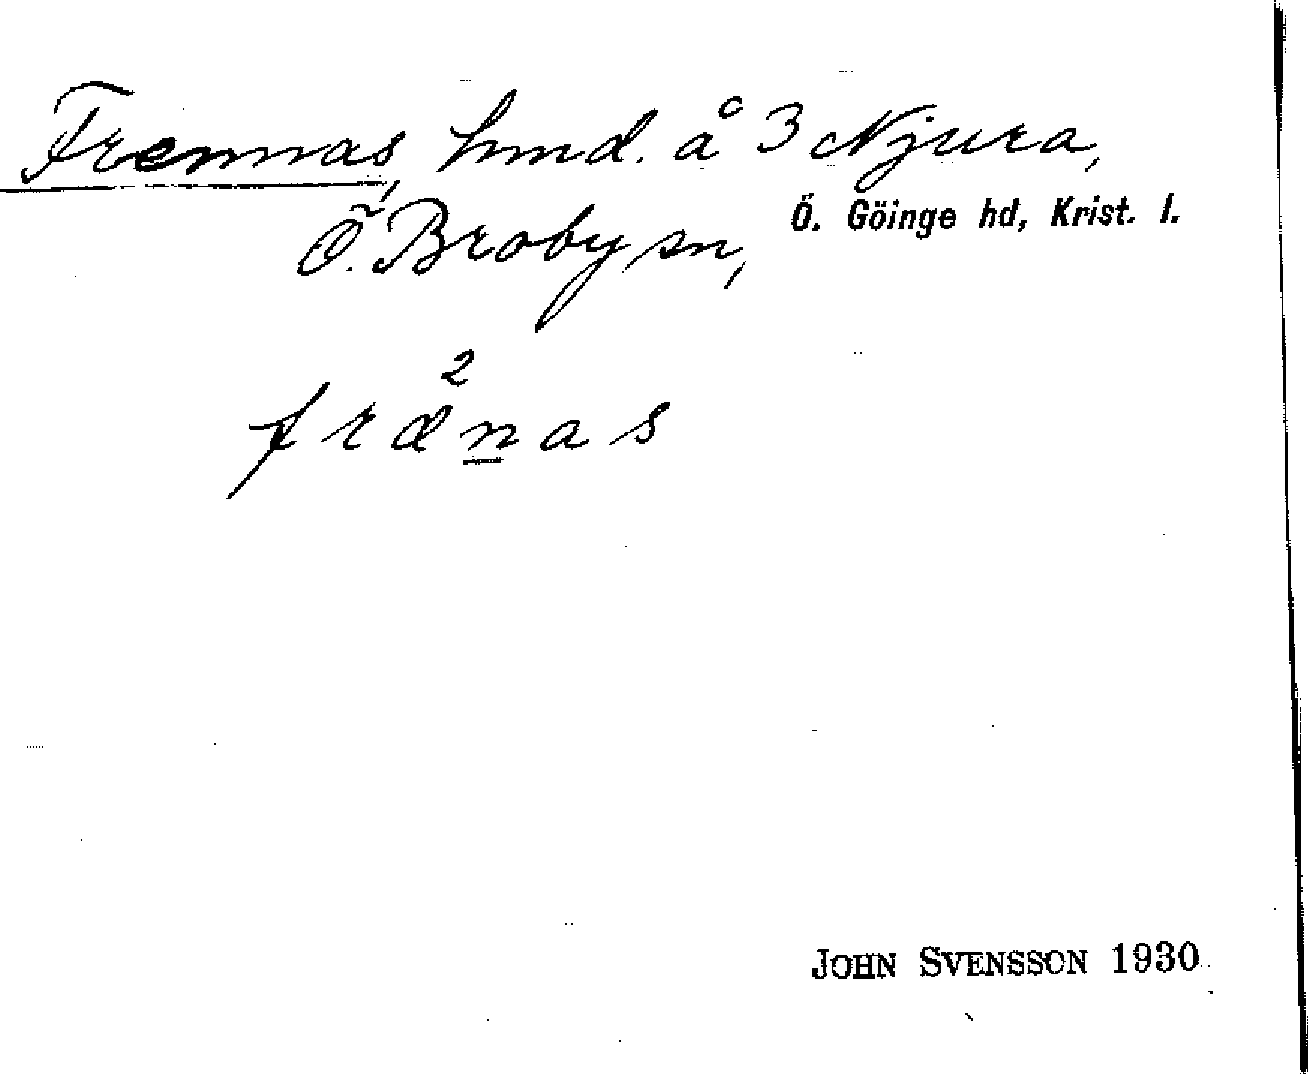 Frennas, hmd. å 3 Njura,
Ö. Göinge hd, Krist. l.
Ö. Broby sn,
2
frænas
JOHN SVENSSON 1930